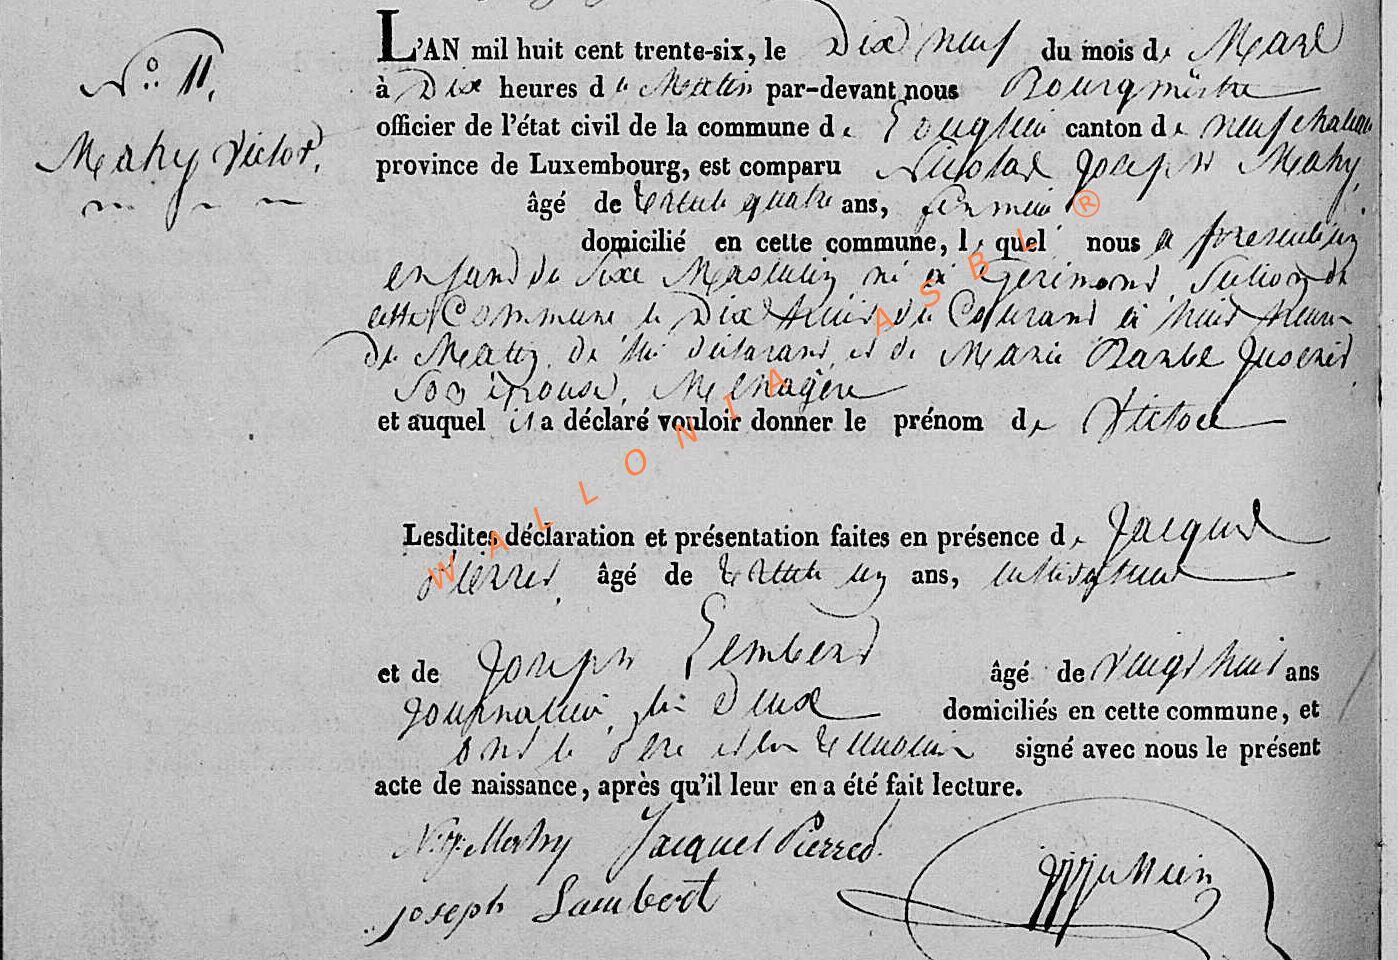 N.° 11,
Mahy Victor,
L'AN mil huit cent trente-six, le Dix neuf du mois de Mars
à Dix heures du Matin par-devant nous Bourgmestre
officier de l'état civil de la commune de canton de neufchateau
province de Luxembourg, est comparu Nicolas Joseph Mahy,
âgé de trente quatre ans,
domicilié en cette commune, le quel nous a présenté un
enfant du sexe Masculin né à Gerimont, Section de
cette Commune le Dix huit du Courant à huit heures
du Matin, de lui déclarant, et de Marie Barbe
son épouse, Ménagère
et auquel il a déclaré vouloir donner le prénom de Victor
Lesdites déclaration et présentation faites en présence de Jacques
Pierret, âgé de trente un ans, instituteur
et de Joseph Lambert âgé de vingt huit ans
journalier, les Deux domiciliés en cette commune, et
ont le Père et les témoins signé avec nous le présent
acte de naissance, après qu'il leur en a été fait lecture.
N. J. Mahy Jacques Pierret
Joseph Lambert
WALLONIA ASBL ®